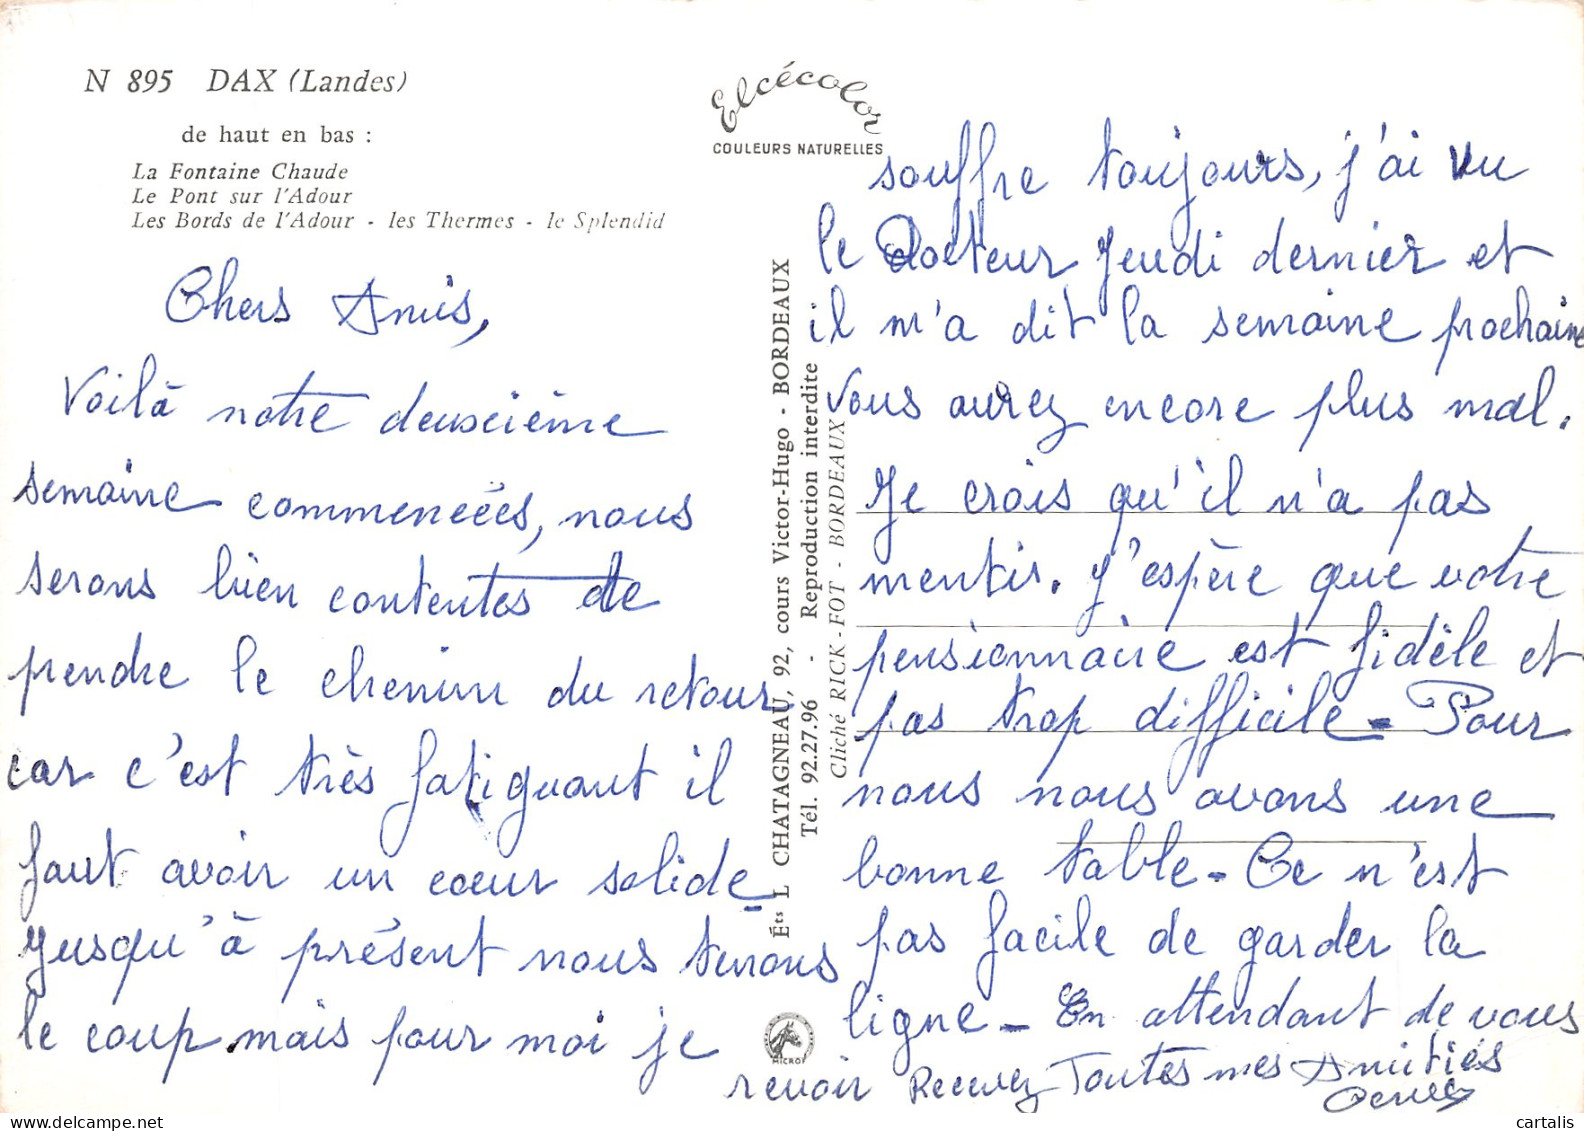 N 895 DAX (Landes)
de haut en bas :
La Fontaine Chaude
Le Pont sur l'Adour
Les Bords de l'Adour - les Thermes - le Splendid
Elcécolor
COULEURS NATURELLES
Chers Amis,
Voilà notre deuxcième
semaine commencéés, nous
serons bien contentes de
prendre le chemin du retour
car c'est très fatiguant il
faut avoir un cœur solide
Jusqu'à présent nous tenons
le coup mais pour moi je
souffre toujours, j'ai vu
le Docteur Jeudi dernier et
il m'a dit la semaine prochaine
vous aurez encore plus mal.
Je crois qu'il n'a pas
mentir. J'espère que votre
pensionnaire est fidèle et
pas trop difficile - Pour
nous nous avons une
bonne table - Ce n'est
pas facile de garder la
ligne - En attendant de vous
revoir Recevez Toutes mes Amitiés
Éts L CHATAGNEAU, 92, cours Victor-Hugo - BORDEAUX
Tél. 92.27.96 - Reproduction interdite
Cliché RICK-FOT - BORDEAUX
MICRO
cartalis